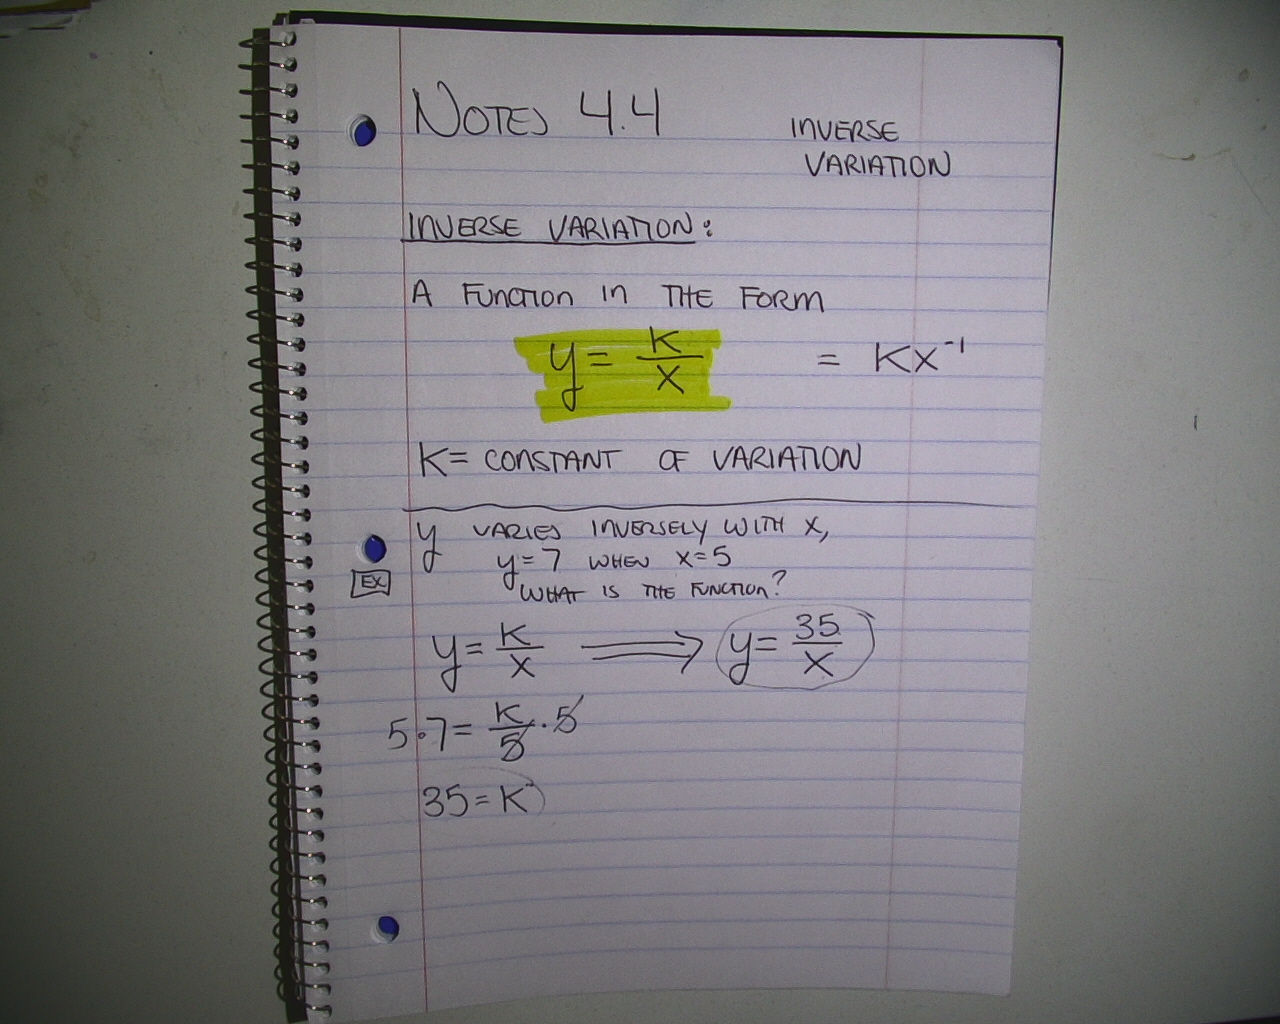 NOTES 4.4
INVERSE
VARIATION
INVERSE VARIATION:
A FUNCTION IN THE FORM
y = K/X = KX⁻¹
K = CONSTANT OF VARIATION
y VARIES INVERSELY WITH X,
y=7 WHEN X=5
EX
WHAT IS THE FUNCTION?
y = K/X ⟹ y = 35/X
5·7 = K/5 · 5
35 = K